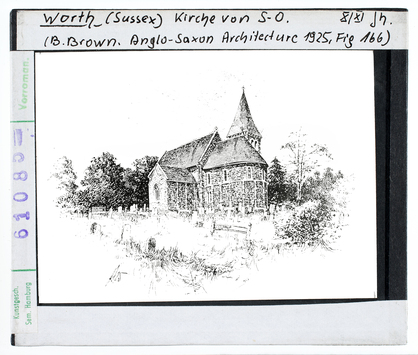 Worth (Sussex) Kirche von S-O. X/XI Jh.
(B. Brown. Anglo-Saxon Architecture 1925, Fig 166)
Vorroman.
61083
Kunstgesch.
Sem. Hamburg